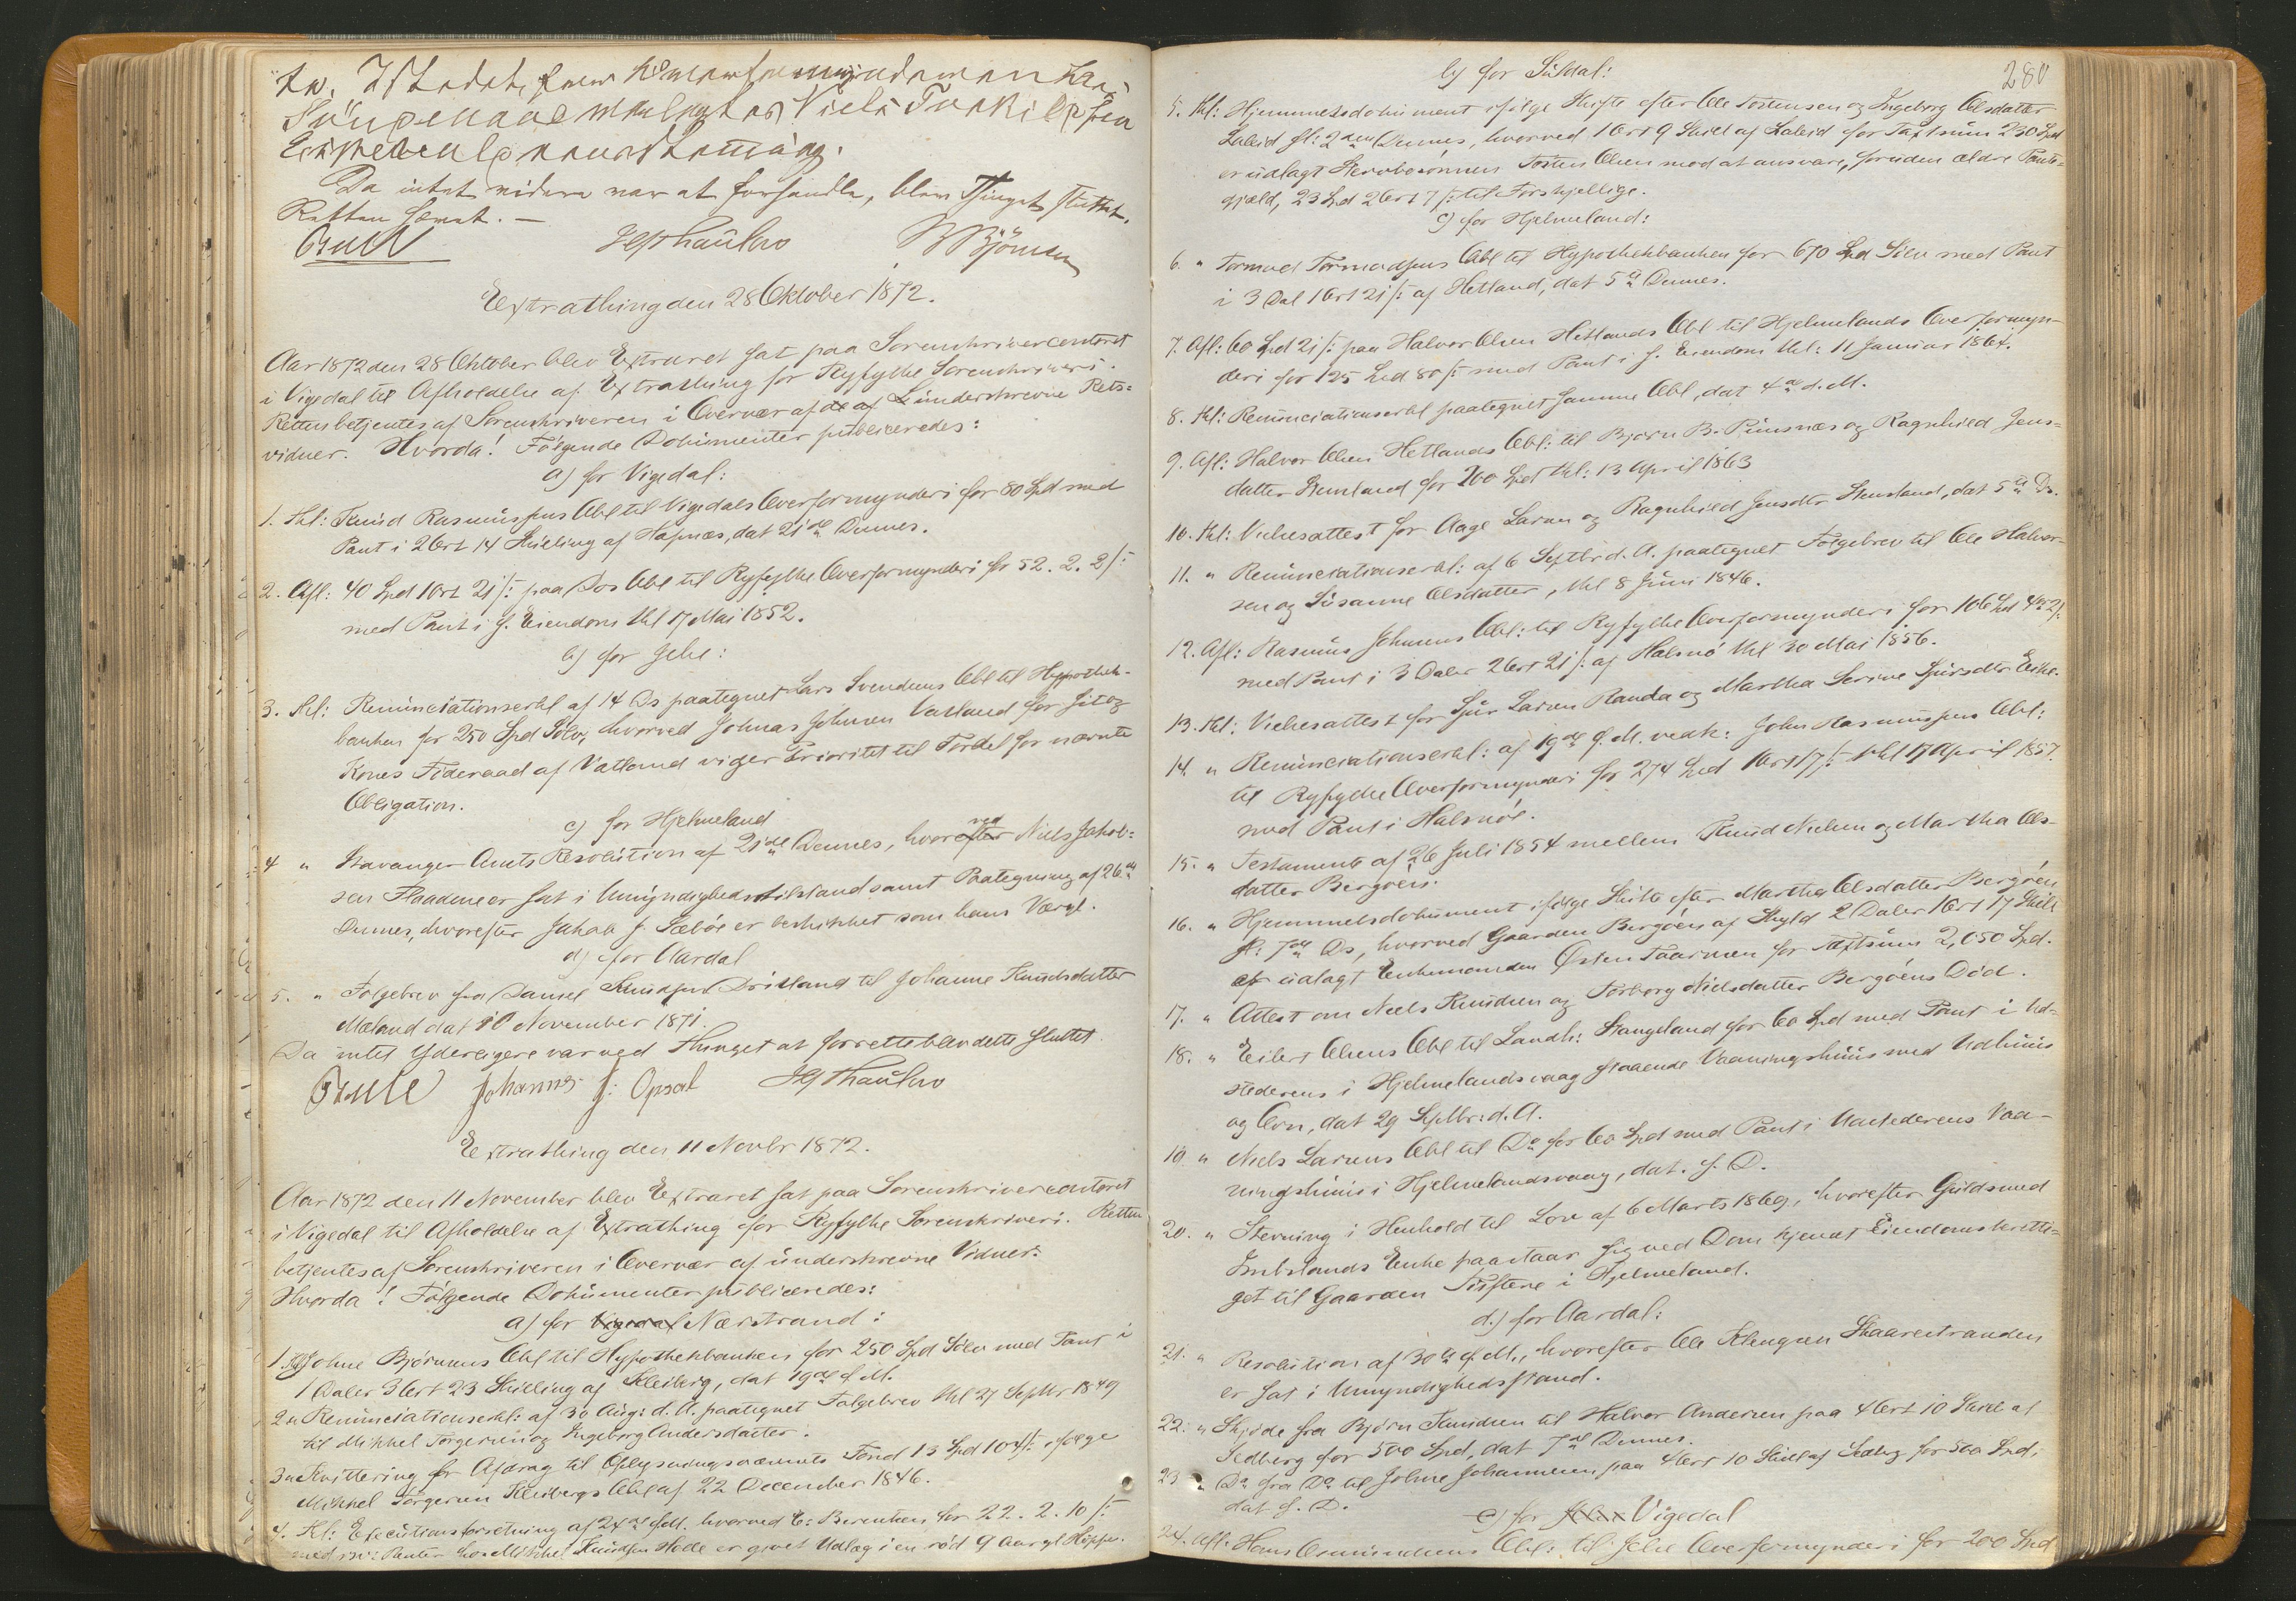 Da intet videre var at forhandle, blev Thinget sluttet.
Retten hævet. —
JHjThaulow BBjörnsen
Extrathing den 28 Oktober 1872.
Aar 1872 den 28 Oktober blev Extraret sat paa Sorenskrivercontoret
i Vigedal til Afholdelse af Extrathing for Ryfylke Sorenskriveri.
Retten betjentes af Sorenskriveren i Overvær af de af underskrevne Rets-
vidner. Hvorda! Følgende Dokumenter publiceredes:
a) for Vigedal:
1. Thl: Knud Rasmussens Obl til Vigedals Overformynderi for 80 Spd med
Pant i 2 Ort 14 Skilling af Hapnæs, dat 21de Dennes.
2. Afl: 40 Spd 1 Ort 21 /: paa Sos Obl til Ryfylke Overformynderi for 52. 2. 2 /:
med Pant i s. Eiendom thl 17 Mai 1852.
b) for Jelse:
3. Thl: Renunciationserkl af 14 Ds paategnet Lars Svendsens Obl til Hypothek-
banken for 250 Spd Sølv, hvorved Johnas Johnsen Vatland for sit og
Kones Föderaad af Vatland viger Prioritet til Fordel for nævnte
Obligation.
c) for Hjelmeland
4 " Stavanger Amts Resolution af 21de Dennes, hvorefter ved Niels Jakob-
sen Flaadene er sat i Umyndighedstilstand samt Paategning af 26de
Dennes, hvorefter Jakob J. Sæbøe er beskikket som hans Værge.
d) for Aardal
5. " Følgebrev fra Daniel Knudsen Dritland til Johanne Knudsdatter
Mæland dat 10 November 1871.
Da intet Yderligere var ved Thinget at forrette blev dette sluttet.
Johannes J: Opsal JHjThaulow
Extrathing den 11 Novbr 1872.
Aar 1872 den 11 November blev Extraret sat paa Sorenskrivercontoret
i Vigedal til Afholdelse af Extrathing for Ryfylke Sorenskriveri. Retten
betjentes af Sorenskriveren i Overvær af underskrevne Vidner.
Hvorda! Følgende Dokumenter publiceredes:
a) for Vigedal Nærstrand:
1. Thl Johne Bjørnsens Obl til Hypothekbanken for 250 Spd Sølv med Pant i
1 Daler 3 Ort 23 Skilling af Kleiberg, dat 19de f. M.
2 " Renunciationserkl: af 30 Aug: d. A. paategnet Følgebrev thl 27 Septbr 1849
til Mikkel Torgersen og Ingeborg Andersdatter.
3 " Kvittering for Afdrag til Oplysningsvæsenets Fond 13 Spd 104 /: ifølge
Mikkel Torgersen Kleibergs Obl af 22 December 1846.
4. Thl: Executionsforretning af 24de f. M. hvorved E: Berentsen for 22. 2. 10 /:
med Renter hos Mikkel Knudsen Hølle er givet Udlæg i en rød 9 Aar gl Hoppe.
280
b) for Suldal:
5. Thl: Hjemmelsdokument ifølge Skifte efter Ole Tostensen og Ingeborg Olsdatter
Laleid sl: 2den Dennes, hvorved 1 Ort 9 Skill af Laleid for Taxtsum 230 Spd
er udlagt Hervborsönnen Tosten Olsen mod at ansvare, foruden ældre Pante-
gjæld, 23 Spd 2 Ort 7 /: til Forskjellige.
c) for Hjelmeland:
6. " Tormod Tormodsens Obl til Hypothekbanken for 670 Spd Sölv med Pant
i 3 Dal 1 Ort 21 /: af Hetland, dat 5te Dennes.
7. Afl: 60 Spd 21 /: paa Halvor Olsen Hetlands Obl til Hjelmelands Overformyn-
deri for 125 Spd 80 /: med Pant i s. Eiendom thl: 11 Januar 1864.
8. Thl: Renunciationserkl paategnet samme Obl, dat 4de d. M.
9. Afl: Halvor Olsen Hetlands Obl: til Bjørn B. Pundsnæs og Ragnhild Jens-
datter Stensland for 200 Spd thl: 13 April 1863
10. Thl: Vielsesattest for Aage Larsen og Ragnhild Jensdtr Stensland, dat 5te Ds.
11. " Renunciationserkl: af 6 Septbr d. A. paategnet Følgebrev til Ole Halvor-
sen og Susanne Olsdatter, thl 8 Juni 1846.
12. Afl: Rasmus Johnsens Obl: til Ryfylke Overformynderi for 106 Spd 4 Ort 2 /:
med Pant i 3 Daler 2 Ort 21 /: af Halsnø thl 30 Mai 1856.
13. Thl: Vielsesattest for Sjur Larsen Randa og Martha Serine Sjursdtr Eike.
14. " Renunciationserkl: af 19de f. M. vedk: John Rasmussens Obl:
til Ryfylke Overformynderi for 274 Spd 1 Ort 17 /: thl 17 April 1857.
med Pant i Halsnöe.
15. " Testament af 26 Juli 1854 mellem Knud Nielsen og Martha Ols-
datter Bergöen.
16. " Hjemmelsdokument ifølge Skifte efter Martha Olsdatter Bergöen
sl: 7de Ds, hvorved Gaarden Bergöen af Skyld 2 Daler 1 Ort 17 Skill
er udlagt Enkemanden Østen Taarnsen for Taxtsum 2,050 Spd.
17. " Attest om Niels Knudsen og Torborg Nielsdatter Bergöens Död.
18. " Eilert Olsens Obl til Landh: Stangeland for 60 Spd med Pant i Ud-
stederens i Hjelmelandsvaag staaende Vaaningshuus med Udhuus
og Ovn, dat 29 Septbr: d. A.
19. " Niels Larsens Obl til Do for 60 Spd med Pant i Udstederens Vaa-
ningshuus i Hjelmelandsvaag, dat. s. D.
20. " Stevning i Henhold til Lov af 6 Marts 1869, hvorefter Guldsmed
Imbslands Enke paastaar sig ved Dom kjendt Eiendomsberetti-
get til Gaarden Tuftene i Hjelmeland.
d.) for Aardal:
21. " Resolution af 30te f. M., hvorefter Ole Klengsen Skaarestranden
er sat i Umyndighedsstand.
22. " Skjøde fra Bjørn Knudsen til Halvor Andersen paa 4 Ort 10 Skill af
Sedberg for 500 Spd, dat 7de Dennes.
23 " Do fra Do til Johne Johannesen paa 4 Ort 10 Skill af Sedberg for 500 Spd,
dat s. D.
e) for Vigedal
24. Afl: Hans Osmundsens Obl: til Jelse Overformynderi for 200 Spd